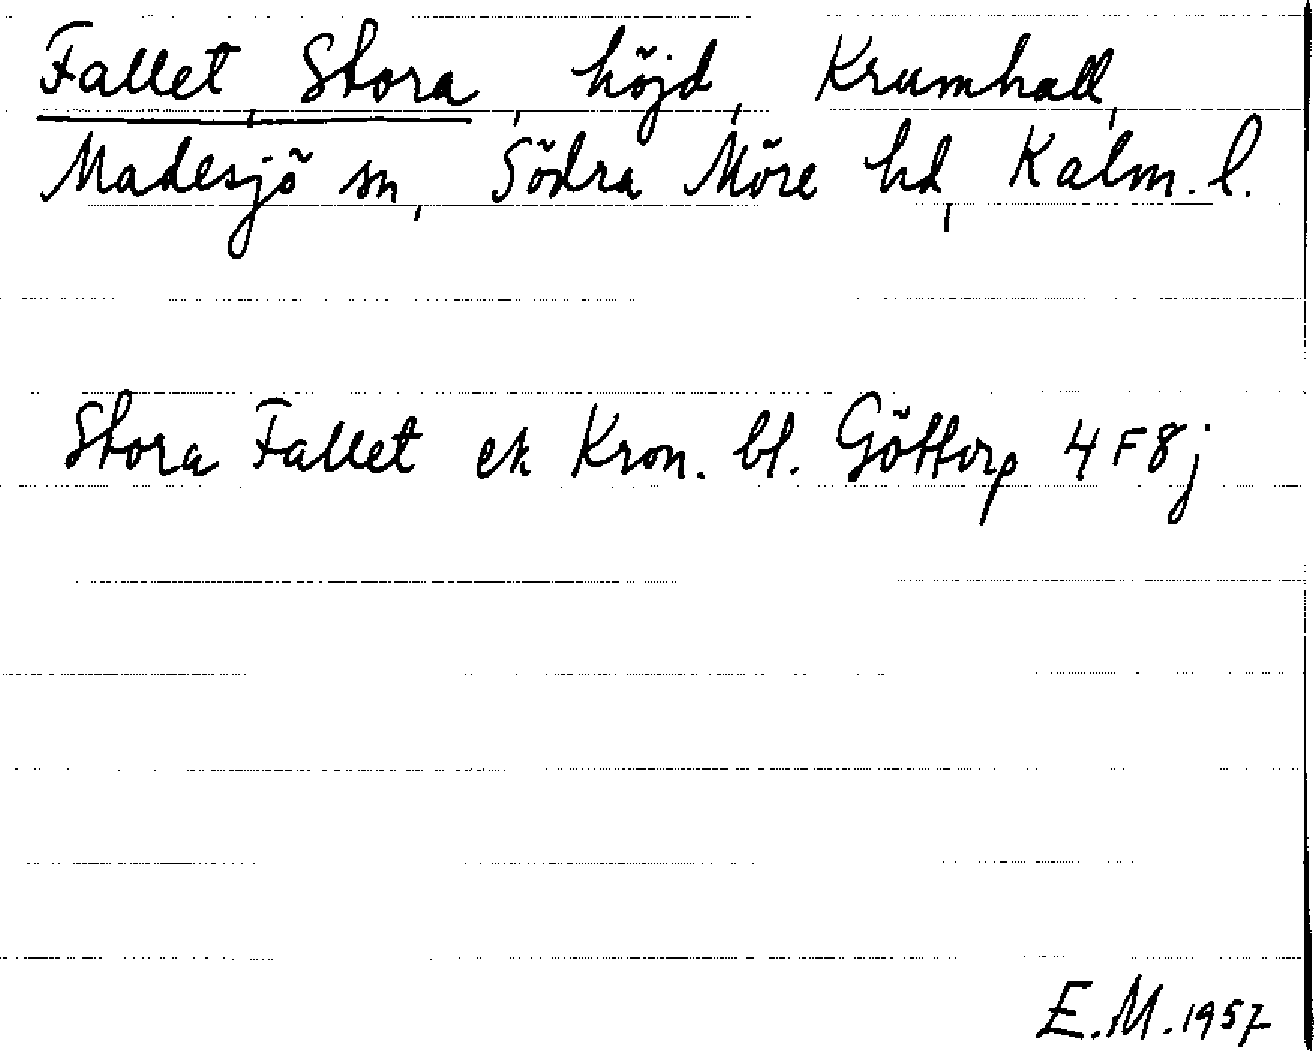 Fallet, Stora, höjd, Krumhall,
Madesjö sn, Södra Möre hd, Kalm. l.
Stora Fallet ek Kron. bl. Göttorp 4F8j
E.M. 1957